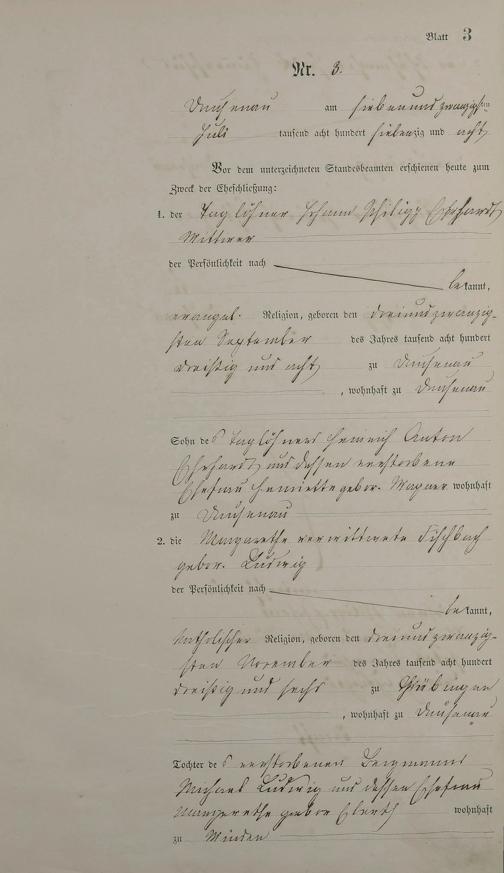 Blatt 3
Nr. 3.
Dausenau am siebenundzwanzigsten
Juli tausend acht hundert siebenzig und acht
Vor dem unterzeichneten Standesbeamten erschienen heute zum
Zweck der Eheschließung:
1. der Taglöhner Johann Philipp Ehrhardt
Wittwer
der Persönlichkeit nach
bekannt,
evangel. Religion, geboren den dreiundzwanzig-
sten September des Jahres tausend acht hundert
dreißig und acht zu Dausenau
, wohnhaft zu Dausenau
Sohn des Taglöhners Heinrich Anton
Ehrhardt und dessen verstorbene
Ehefrau Henriette gebor. Wagner wohnhaft
zu Dausenau
2. die Margarethe verwittwete Fischbach
gebor. Ludwig
der Persönlichkeit nach
bekannt,
katholischer Religion, geboren den dreiundzwanzig-
sten November des Jahres tausend acht hundert
dreißig und sechs zu
, wohnhaft zu Dausenau
Tochter des verstorbenen Bergmanns
Michael Ludwig und dessen Ehefrau
Margarethe gebor wohnhaft
zu Minden